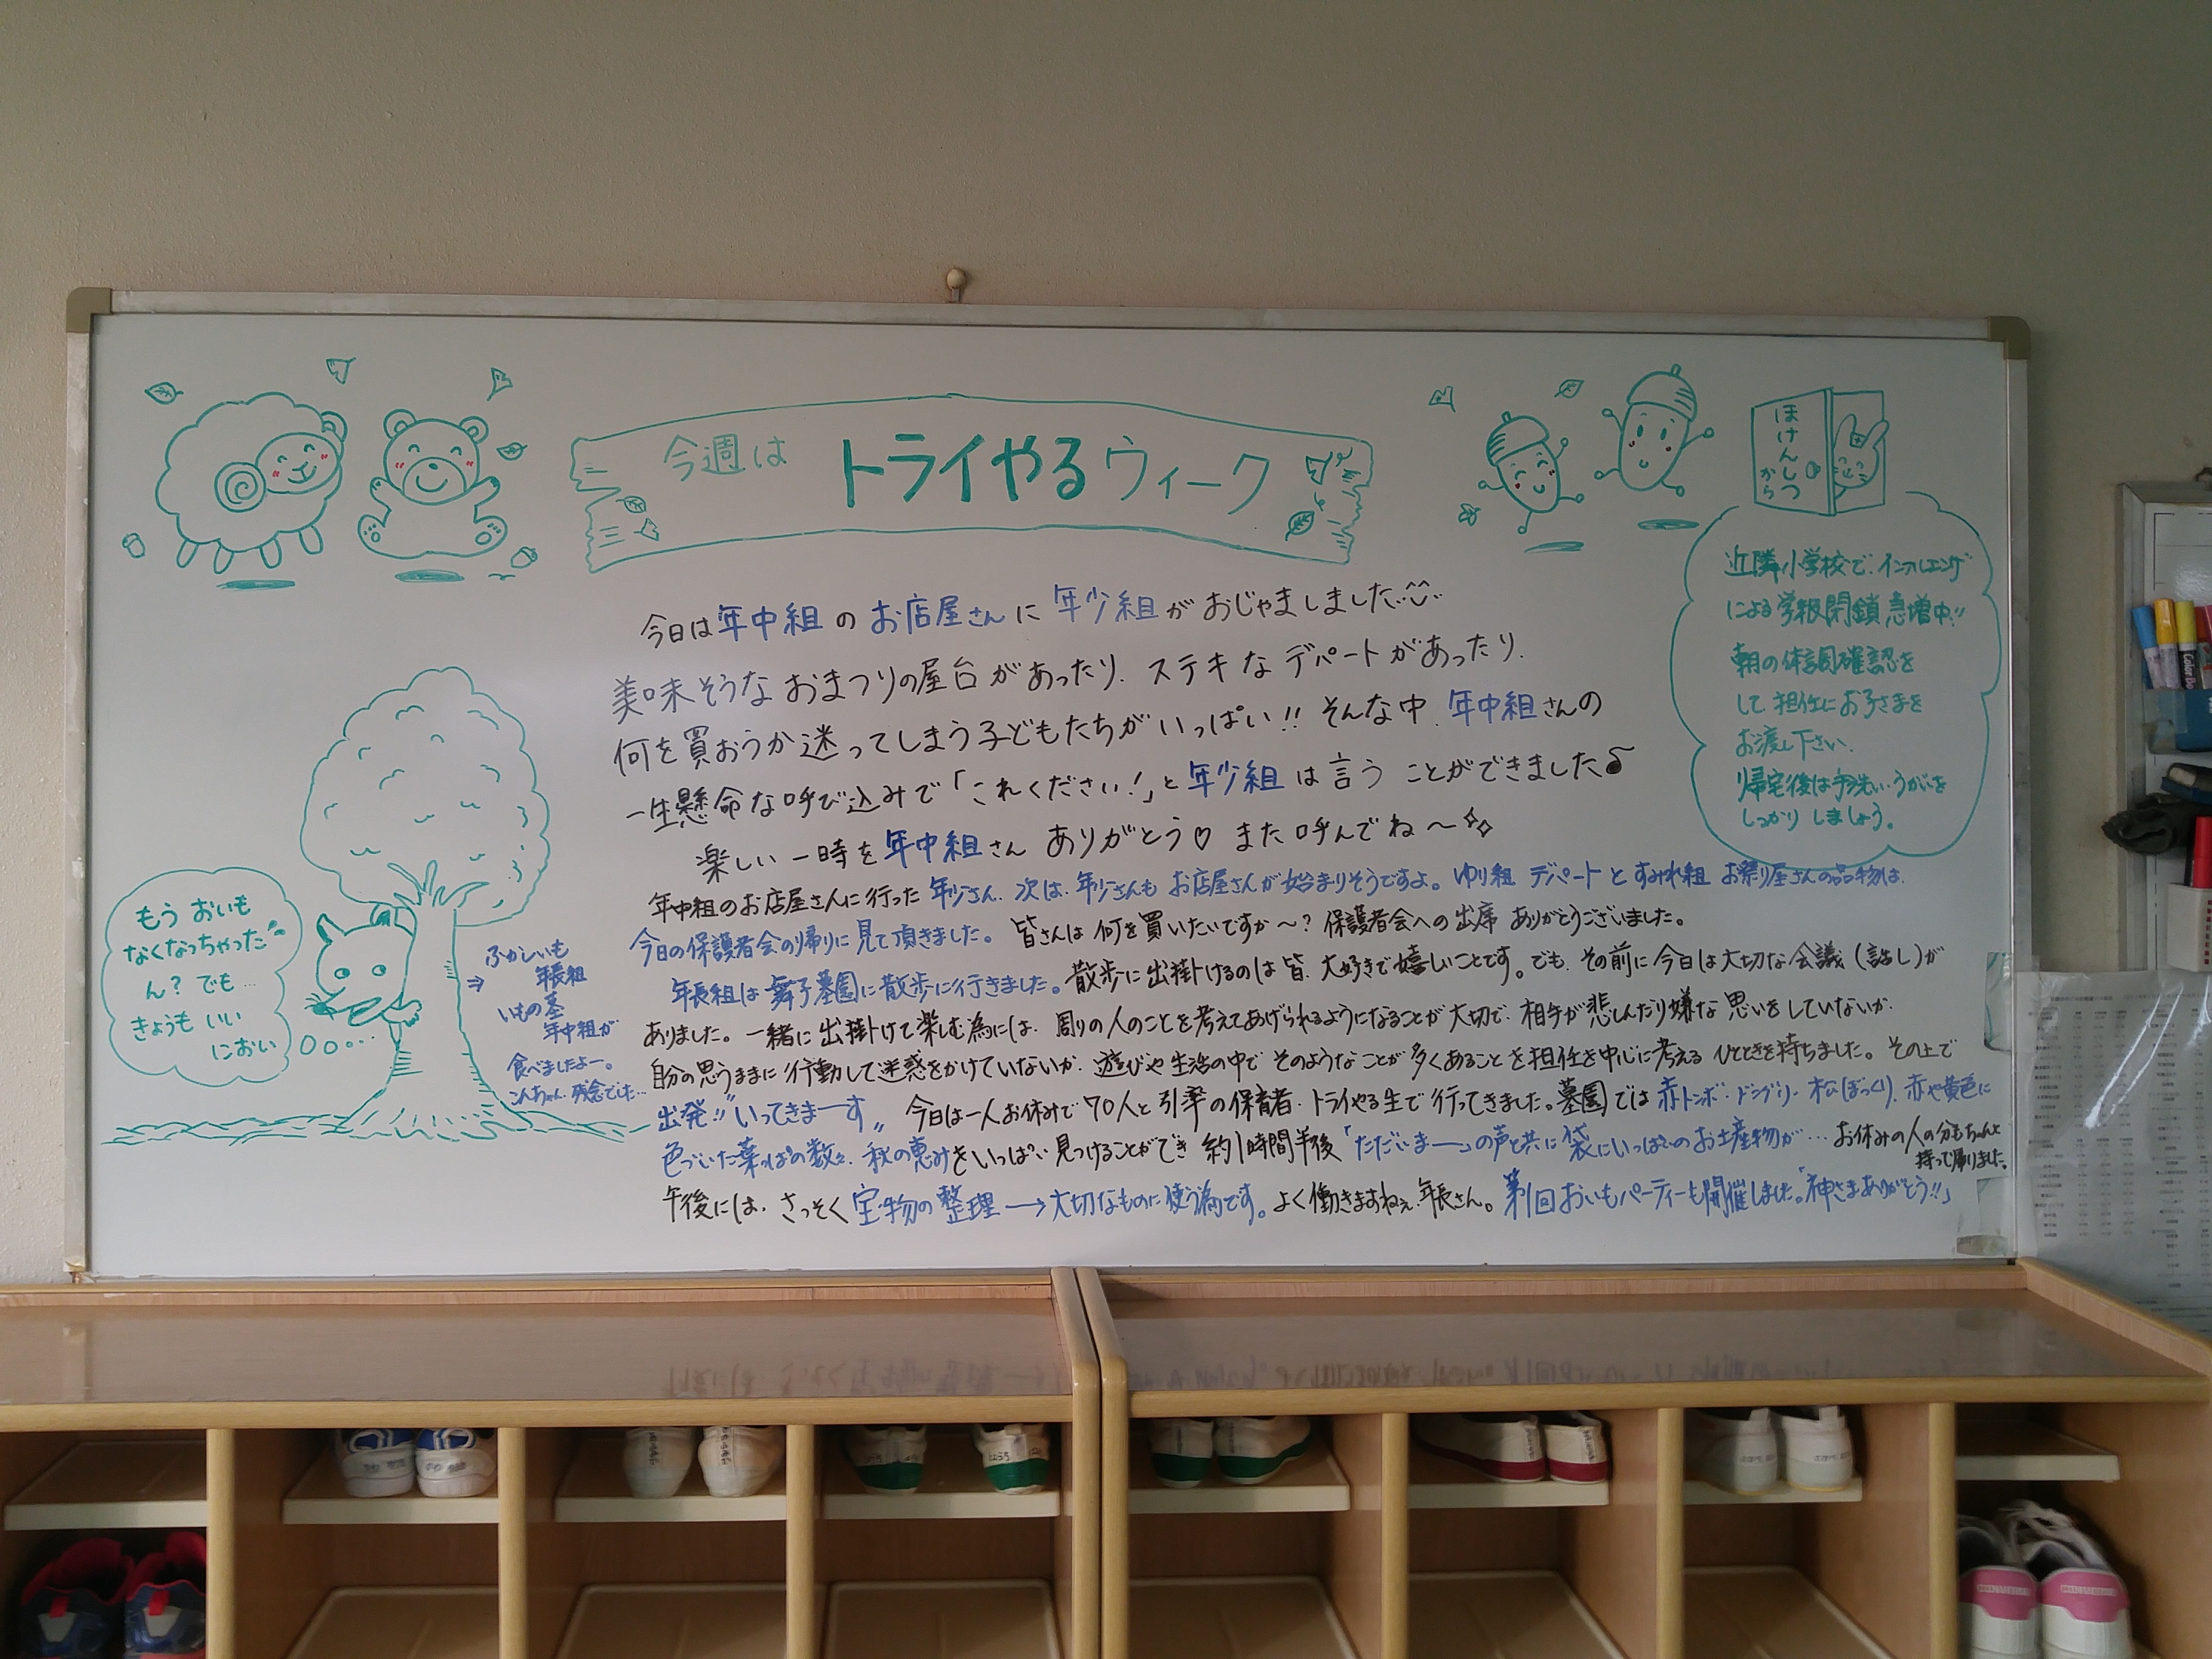 今週は トライやるウィーク
ほけんしつ
から
近隣小学校で、インフルエンザ
による学級閉鎖急増中!!
朝の体調確認を
して担任にお子さまを
お渡し下さい。
帰宅後は手洗い・うがいを
しっかりしましょう。
今日は年中組のお店屋さんに年少組がおじゃましました
美味そうなおまつりの屋台があったり、ステキなデパートがあったり、
何を買おうか迷ってしまう子どもたちがいっぱい!! そんな中、年中組さんの
一生懸命な呼び込みで「これください!」と年少組は言うことができました♪
楽しい一時を年中組さん ありがとう♡ また呼んでね〜
年中組のお店屋さんに行った年少さん、次は、年少さんもお店屋さんが始まりそうですよ。ゆり組 デパートとすみれ組 お祭り屋さんの品物は、
今日の保護者会の帰りに見て頂きました。皆さんは何を買いたいですか〜? 保護者会への出席 ありがとうございました。
年長組は舞子墓園に散歩に行きました。散歩に出掛けるのは皆、大好きで嬉しいことです。でも、その前に今日は大切な会議(話し)が
ありました。一緒に出掛けて楽しむ為には、周りの人のことを考えてあげられるようになることが大切で、相手が悲しんだり嫌な思いをしていないか、
自分の思うままに行動して迷惑をかけていないか、遊びや生活の中でそのようなことが多くあることを担任を中心に考えるひとときを持ちました。その上で
出発!!"いってきまーす" 今日は一人お休みで70人と引率の保育者・トライやる生で行ってきました。墓園では赤トンボ・ドングリ・松ぼっくり、赤や黄色に
色づいた葉っぱの数々、秋の恵みをいっぱい見つけることができ 約1時間半後「ただいまー」の声と共に袋にいっぱいのお土産物が… お休みの人の分もちゃんと
持って帰りました。
午後には、さっそく宝物の整理→大切なものに使う為です。よく働きますねぇ、年長さん。第1回おいもパーティーも開催しました。「神さまありがとう!!」
もう おいも
なくなっちゃった
ん? でも…
きょうも いい
におい
⇒ ふかしいも
年長組
いもの茎
年中組が
食べましたよー。
こんちゃん、残念でした…